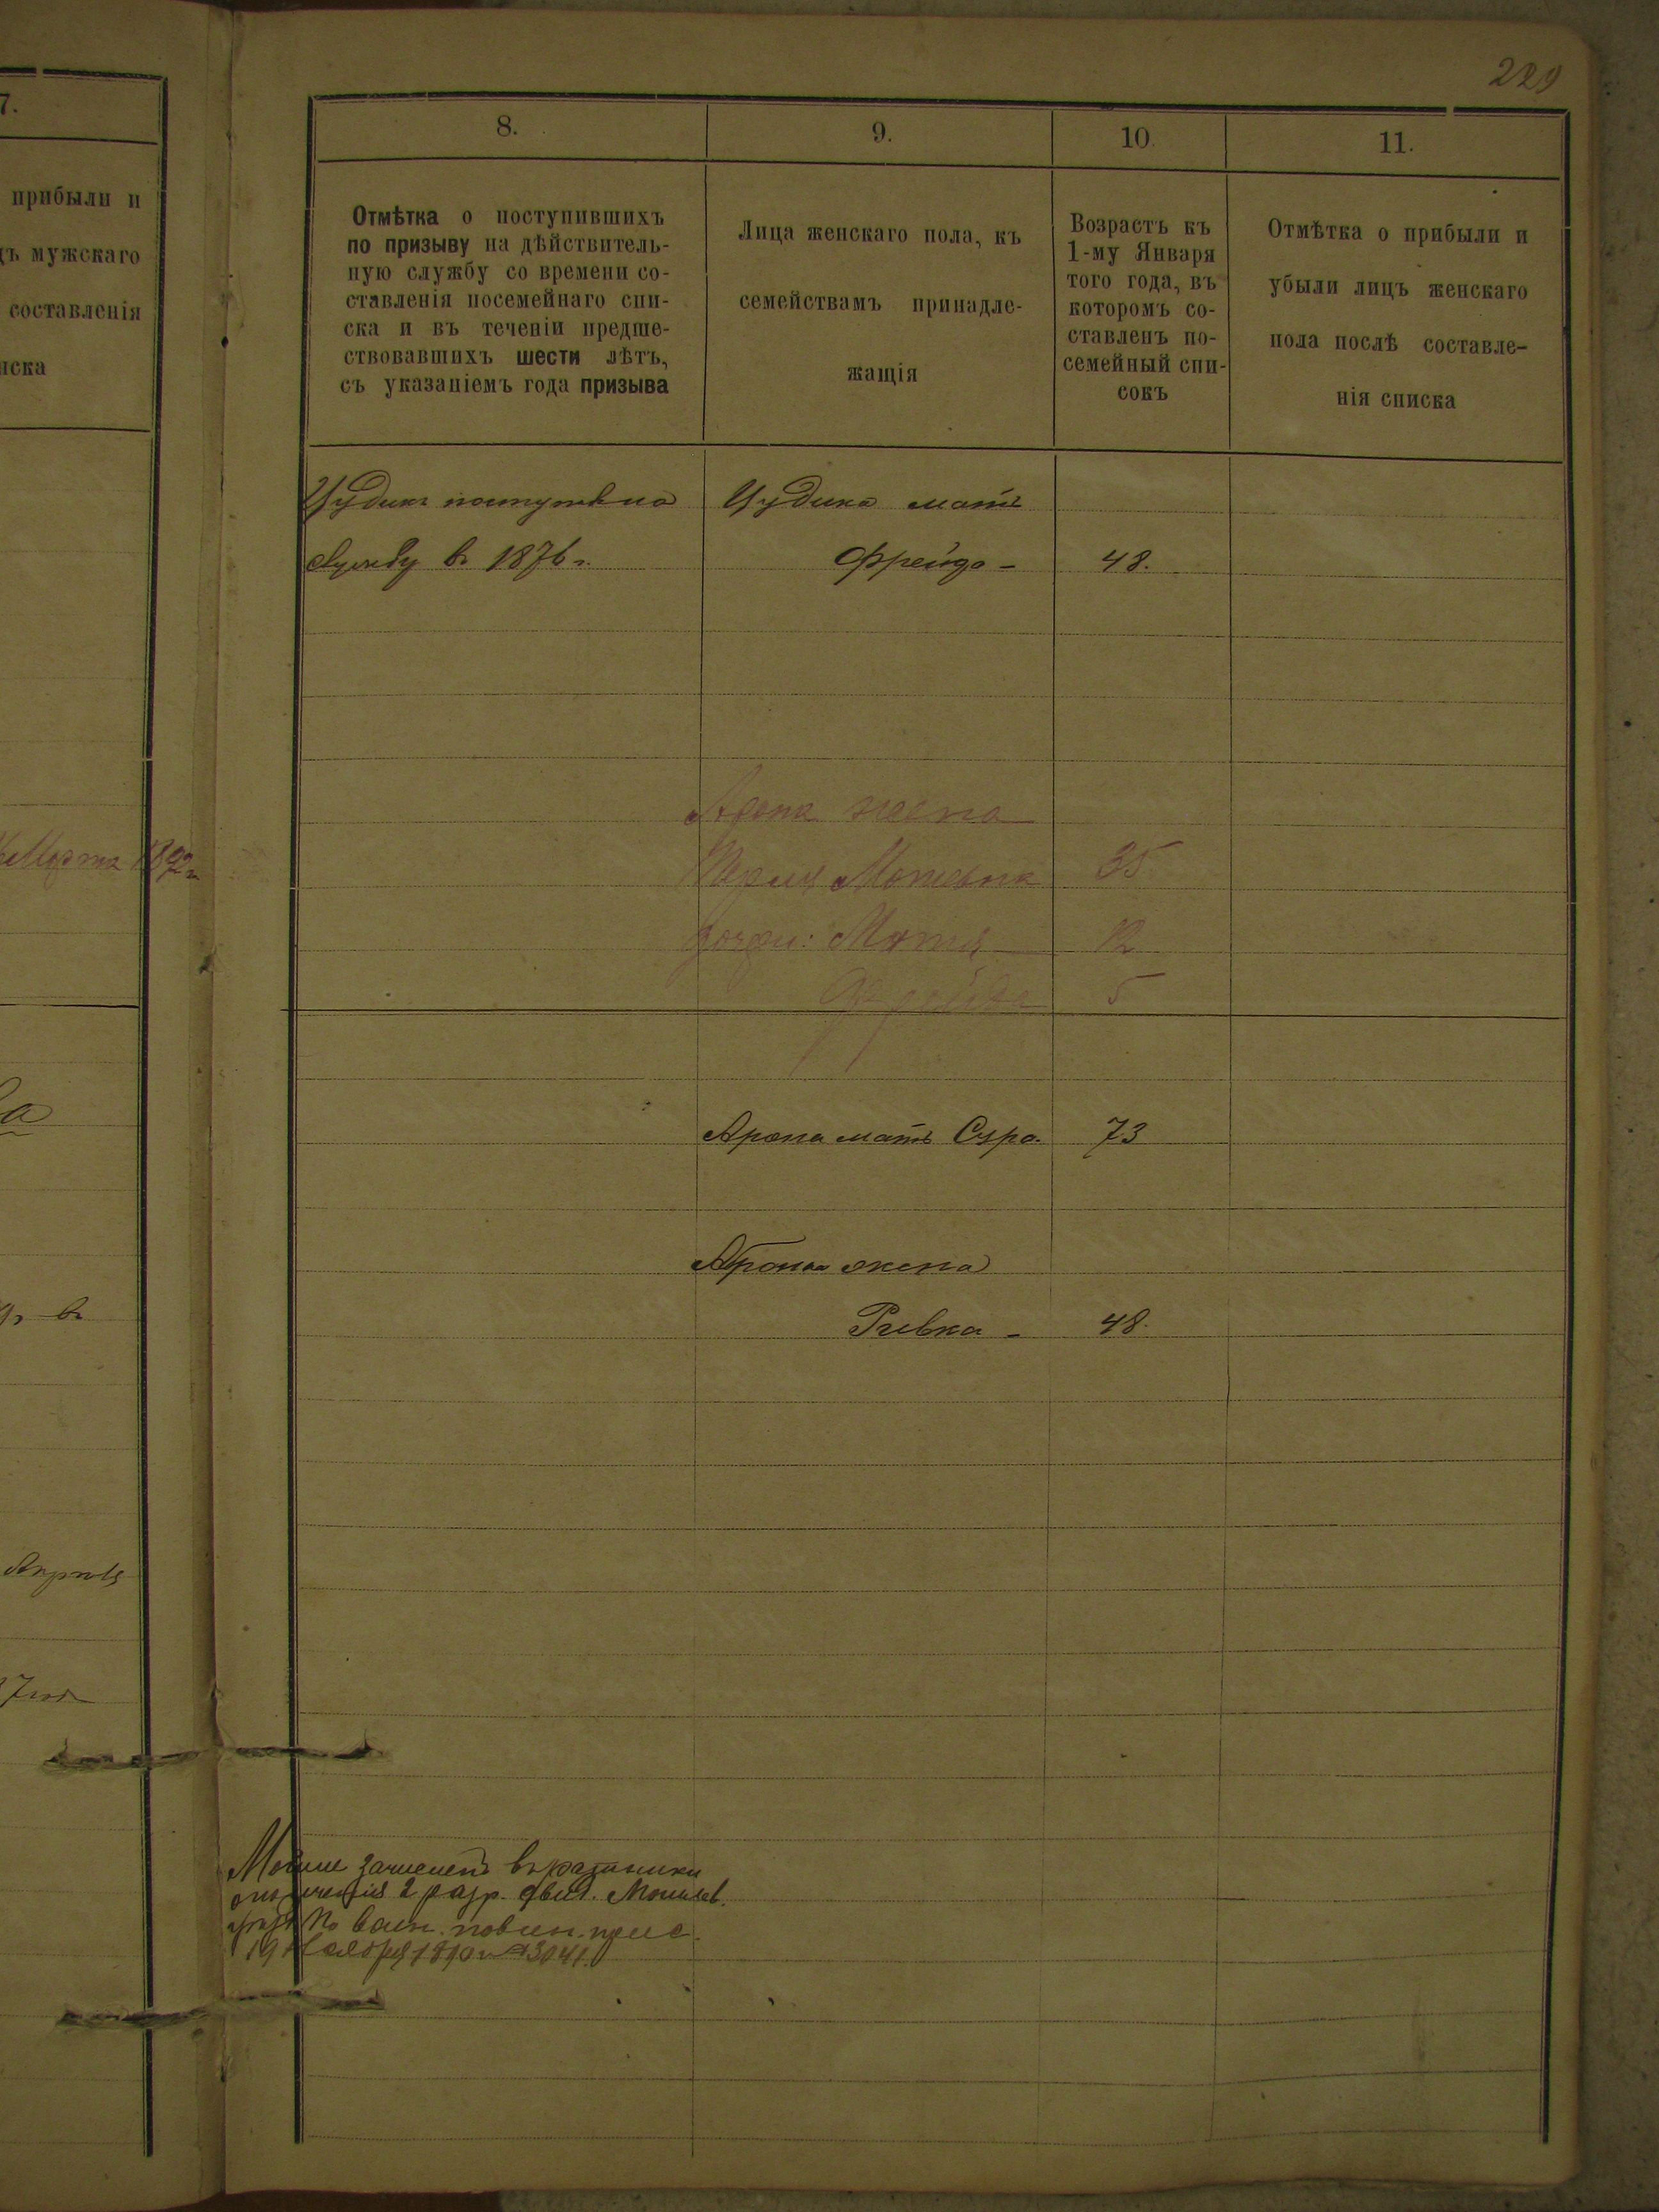 229
7.
прибыли и
мужскаго
составленія
8.
Отмѣтка о поступившихъ
по призыву на дѣйствитель-
ную службу со времени со-
ставленія посемейнаго спи-
ска и въ теченіи предше-
ствовавшихъ шести лѣтъ,
съ указаніемъ года призыва
9.
Лица женскаго пола, къ
семействамъ принадле-
жащія
10.
Возрастъ къ
1-му Января
того года, въ
которомъ со-
ставленъ по-
семейный спи-
сокъ
11.
Отмѣтка о прибыли и
убыли лицъ женскаго
пола послѣ составле-
нія списка
Иудик поступ. на
службу в 1876 г.
Иудика мать
Фрейда - 48.
Марта 1892 г.
Арона жена
Мошевна 35
дочери: 12
Фрейда 5
Арона мать Сяра. 73
Арона жена
Ривка - 48.
Апрѣля
Мовша зачислен въ ратники
ополченія 2 разр. Могилев.
по воин. повин. прис.
19 Ноября 1890 г. № 3041.